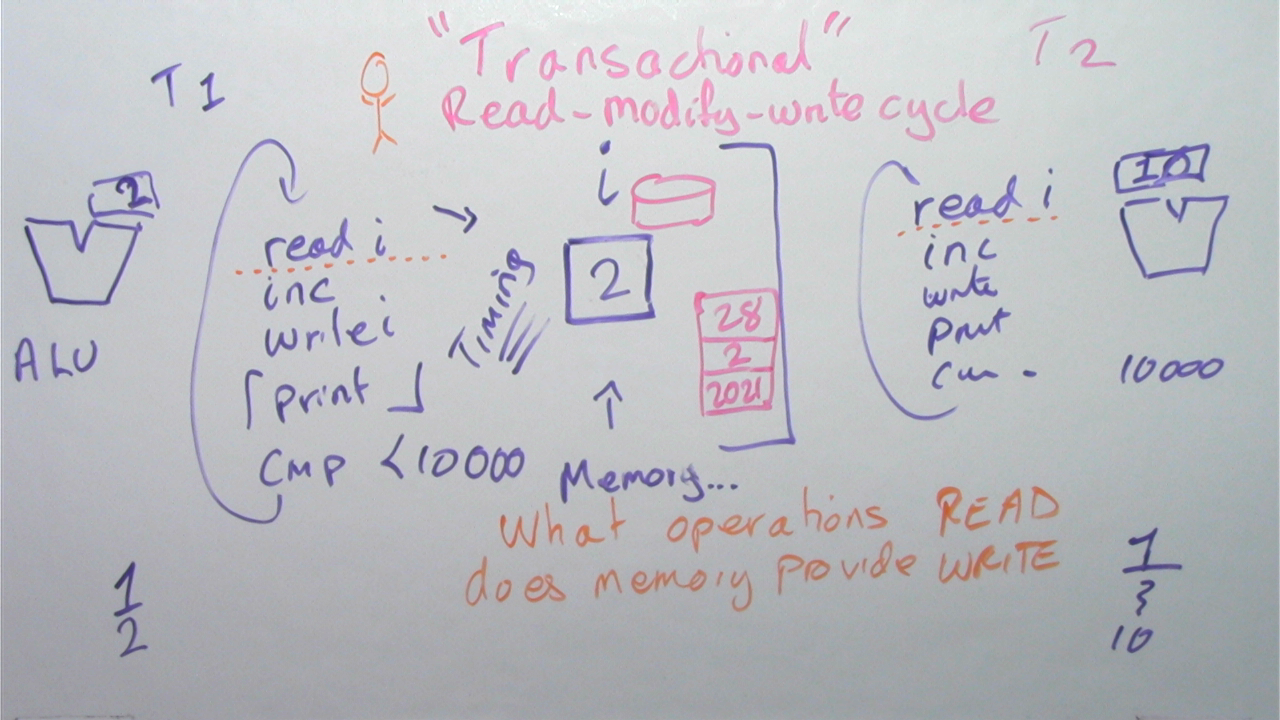 "Transactional"
Read-modify-write cycle
T1
T2
2
ALU
read i
inc
write i
[print]
cmp <10000
Timing
i
2
28
2
2021
Memory...
read i
inc
write
print
10
10000
What operations READ
does memory provide WRITE
1
2
1
10